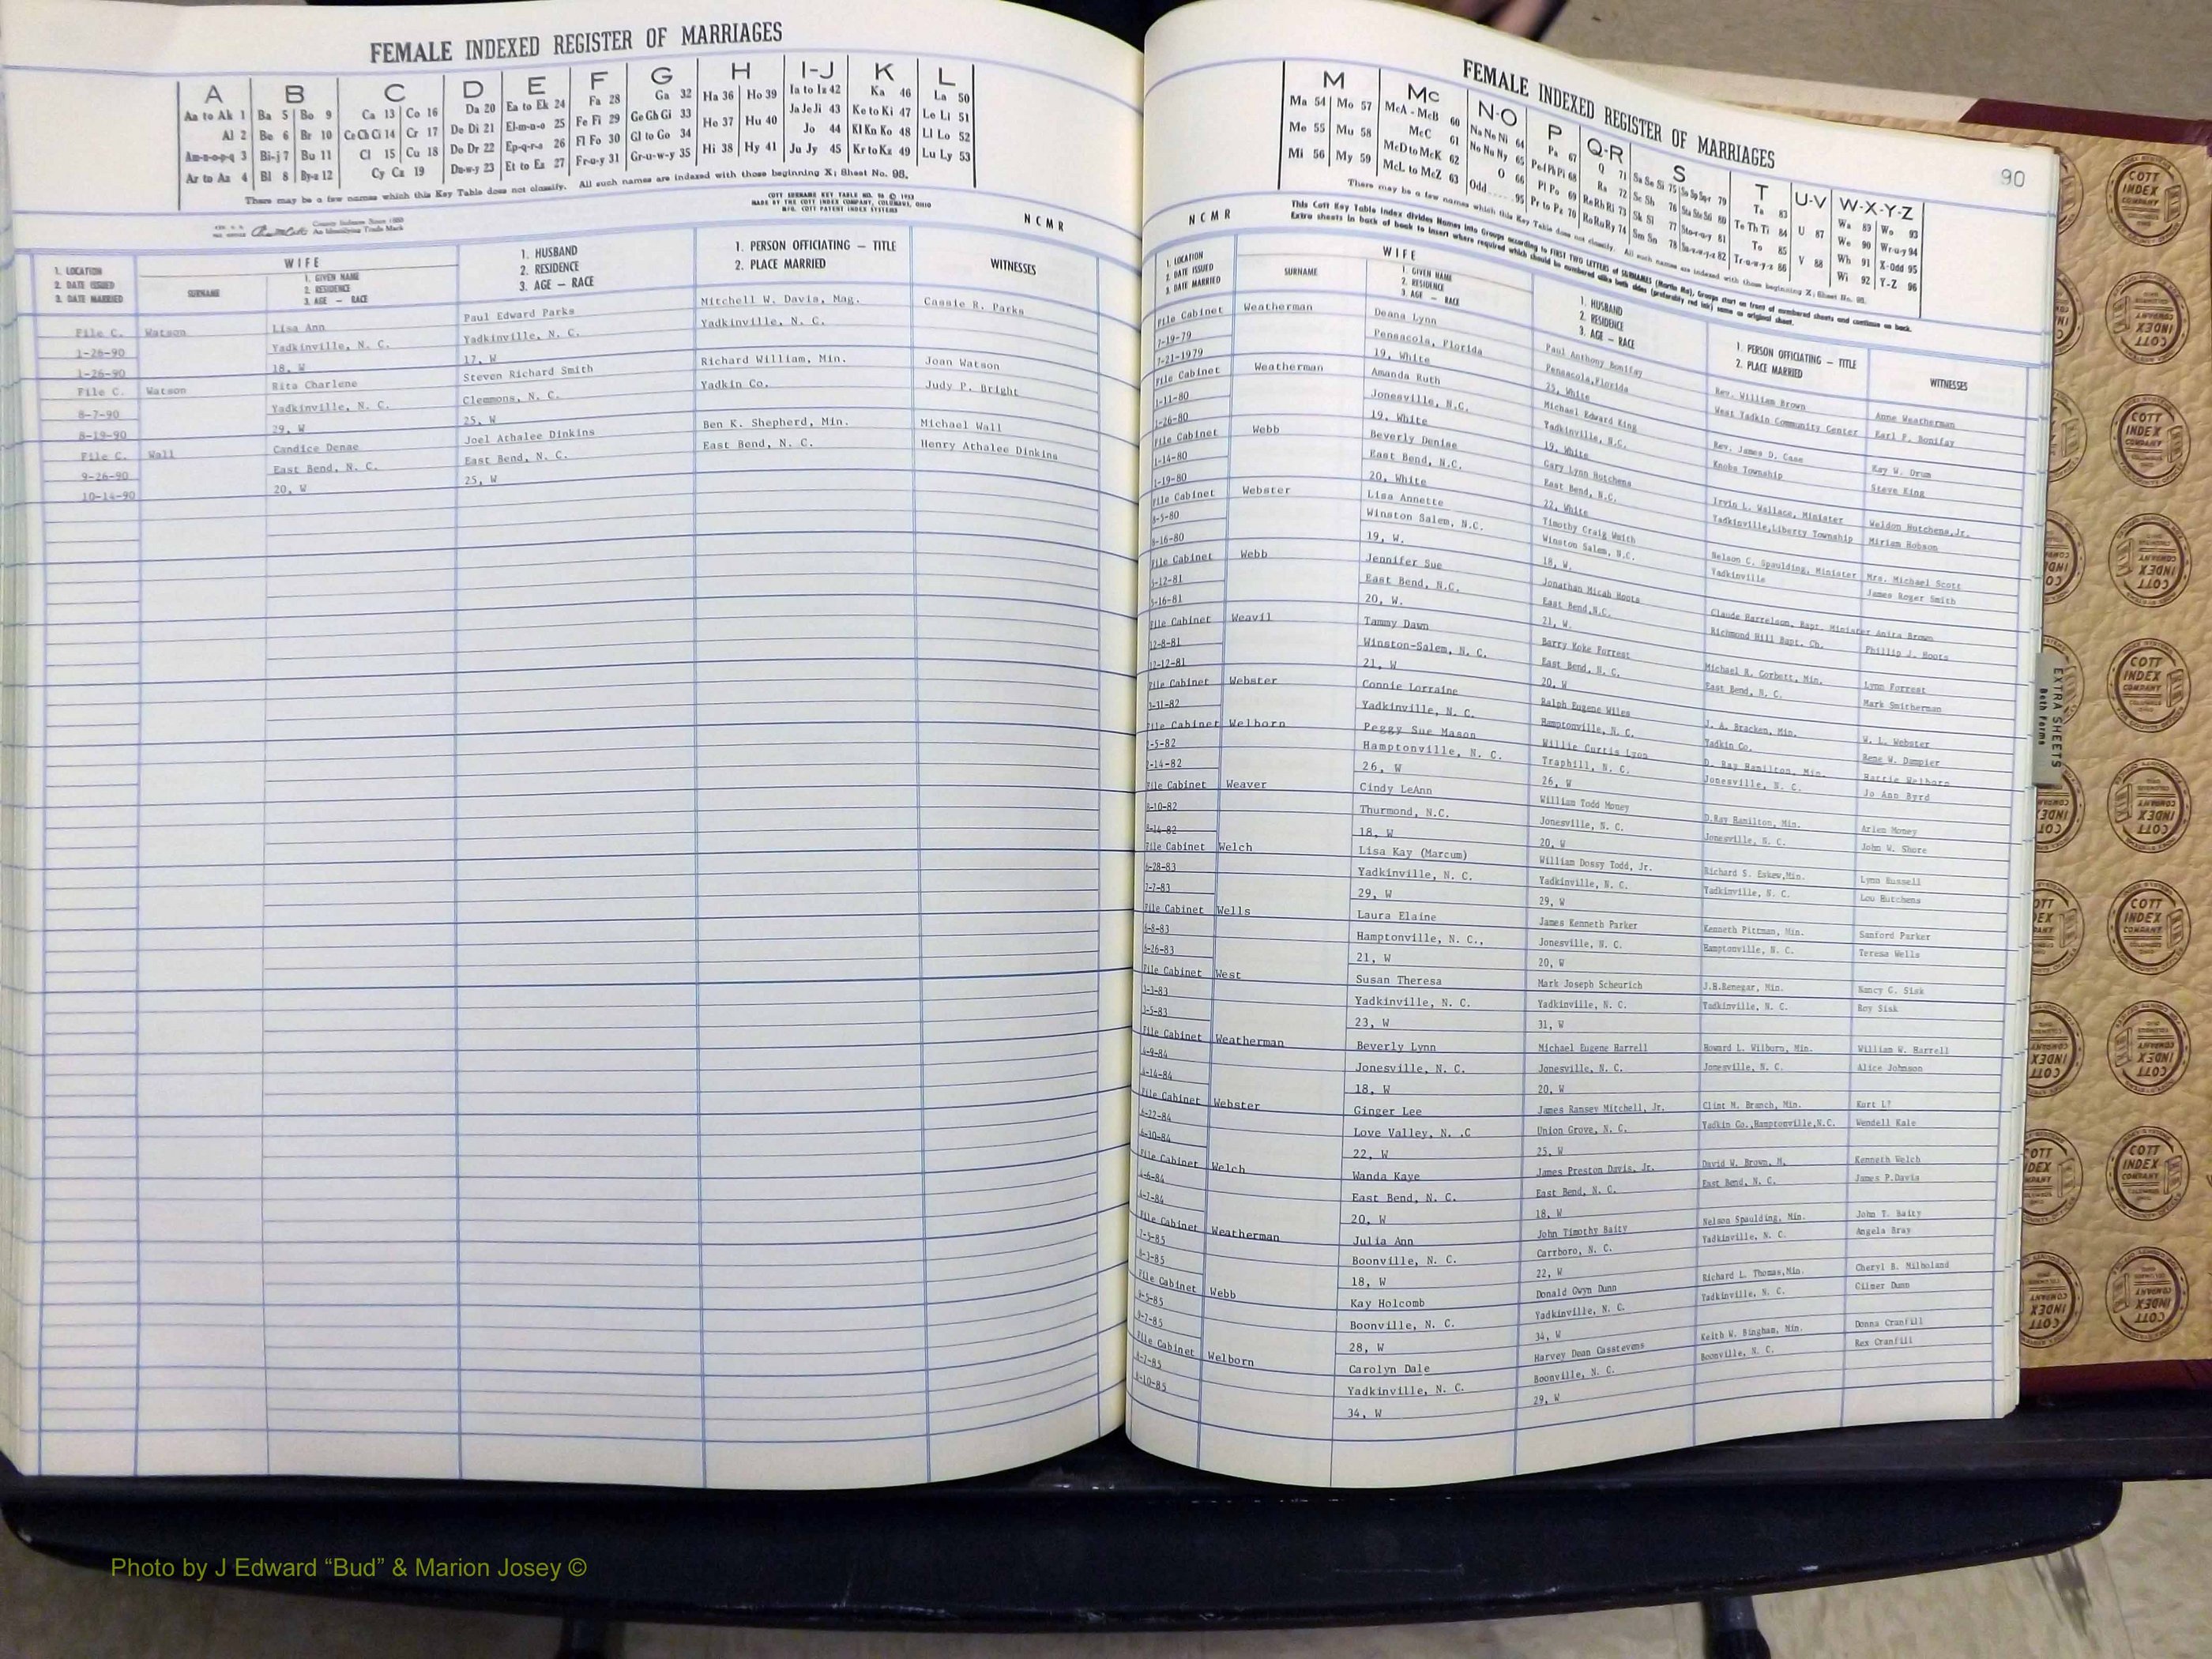 FEMALE INDEXED REGISTER OF MARRIAGES
A B C D E F G H I-J K L
Aa to Ak 1 Ba 5 Bo 9 Ca 13 Co 16 Da 20 Ea to Ek 24 Fa 28 Ga 32 Ha 36 Ho 39 Ia to Iz 42 Ka 46 La 50
Al 2 Be 6 Br 10 Ce Ch Ci 14 Cr 17 De Di 21 El-m-n-o 25 Fe Fi 29 Ge Gh Gi 33 He 37 Hu 40 Ja Je Ji 43 Ke to Ki 47 Le Li 51
Am-n-o-p-q 3 Bi-j 7 Bu 11 Cl 15 Cu 18 Do Dr 22 Ep-q-r-s 26 Fl Fo 30 Gl to Go 34 Hi 38 Hy 41 Jo 44 Kl Kn Ko 48 Ll Lo 52
Ar to Az 4 Bl 8 By-z 12 Cy Cz 19 Du-w-y 23 Et to Ez 27 Fr-u-y 31 Gr-u-w-y 35 Ju Jy 45 Kr to Kz 49 Lu Ly 53
There may be a few names which this Key Table does not classify. All such names are indexed with those beginning X; Sheet No. 98.
COTT SURNAME KEY TABLE NO.
MADE BY THE COTT INDEX COMPANY, COLUMBUS, OHIO
MFG. COTT PATENT INDEX SYSTEMS
County Indexes Since 1888
An Identifying Trade Mark
N C M R
1. LOCATION
2. DATE ISSUED
3. DATE MARRIED
WIFE
SURNAME
1. GIVEN NAME
2. RESIDENCE
3. AGE — RACE
1. HUSBAND
2. RESIDENCE
3. AGE — RACE
1. PERSON OFFICIATING — TITLE
2. PLACE MARRIED
WITNESSES
File C. Watson Lisa Ann Paul Edward Parks Mitchell W. Davis, Mag. Cassie R. Parks
1-26-90 Yadkinville, N. C. Yadkinville, N. C. Yadkinville, N. C.
1-26-90 18, W 17, W
File C. Watson Rita Charlene Steven Richard Smith Richard William, Min. Joan Watson
8-7-90 Yadkinville, N. C. Clemmons, N. C. Yadkin Co. Judy P. Bright
8-19-90 29, W 25, W
File C. Wall Candice Denae Joel Athalee Dinkins Ben K. Shepherd, Min. Michael Wall
9-26-90 East Bend, N. C. East Bend, N. C. East Bend, N. C. Henry Athalee Dinkins
10-14-90 20, W 25, W
FEMALE INDEXED REGISTER OF MARRIAGES
90
M Mc N-O P Q-R S T U-V W-X-Y-Z
Ma 54 Mo 57 McA - McB 60 Na Ne Ni 64 Pa 67 Q 71 Sa Sc Si 75 Ta 83 U 87 Wa 89 Wo 93
Me 55 Mu 58 McC 61 No Nu Ny 65 Pe Ph Pi 68 Ra 72 Se Sh 76 Te Th Ti 84 V 88 We 90 Wr-u-y 94
Mi 56 My 59 McD to McK 62 O 66 Pl Po 69 Re Rh Ri 73 Sk Sl 77 To 85 Wh 91 X-Odd 95
McL to McZ 63 Odd 95 Pr to Pz 70 Ro Ru Ry 74 Sm Sn 78 Tr-u-w-y-z 86 Wi 92 Y-Z 96
There may be a few names which this Key Table does not classify. All such names are indexed with those beginning X; Sheet No. 98.
N C M R
This Cott Key Table Index divides Names into Groups according to FIRST TWO LETTERS of SURNAMES (Martin Ma), Groups start on front of numbered sheets and continue on back.
Extra sheets in back of book to insert where required which should be numbered alike both sides (preferably red ink) same as original sheet.
1. LOCATION
2. DATE ISSUED
3. DATE MARRIED
WIFE
SURNAME
1. GIVEN NAME
2. RESIDENCE
3. AGE — RACE
1. HUSBAND
2. RESIDENCE
3. AGE — RACE
1. PERSON OFFICIATING — TITLE
2. PLACE MARRIED
WITNESSES
File Cabinet Weatherman Deana Lynn Paul Anthony Bonifay Rev. William Brown Anne Weatherman
7-19-79 Pensacola, Florida Pensacola,Florida West Yadkin Community Center Earl F. Bonifay
7-21-1979 19, White 25, White
File Cabinet Weatherman Amanda Ruth Michael Edward King Rev. James D. Case Kay W. Drum
1-11-80 Jonesville, N.C. Yadkinville, N.C. Knobs Township Steve King
1-26-80 19, White 19, White
File Cabinet Webb Beverly Denise Gary Lynn Hutchens Irvin L. Wallace, Minister Weldon Hutchens,Jr.
1-14-80 East Bend, N.C. East Bend, N.C. Yadkinville,Liberty Township Miriam Hobson
1-19-80 20, White 22, White
File Cabinet Webster Lisa Annette Timothy Craig Nelson C. Spaulding, Minister Mrs. Michael Scott
8-5-80 Winston Salem, N.C. Winston Salem, N.C. Yadkinville James Roger Smith
8-16-80 19, W. 18, W.
File Cabinet Webb Jennifer Sue Jonathan Micah Hoots Claude Harrelson, Bapt. Minister Anita Brown
5-12-81 East Bend, N.C. East Bend,N.C. Richmond Hill Bapt. Ch. Phillip J. Hoots
5-16-81 20, W. 21, W.
File Cabinet Weavil Tammy Dawn Barry Koke Forrest Michael R. Corbett, Min. Lynn Forrest
12-8-81 Winston-Salem, N. C. East Bend, N. C. East Bend, N. C. Mark Smitherman
12-12-81 21, W 20, W
File Cabinet Webster Connie Lorraine Ralph Eugene Wiles J. A. Bracken, Min. W. L. Webster
1-31-82 Yadkinville, N. C. Hamptonville, N. C. Yadkin Co. Rene W. Dampier
File Cabinet Welborn Peggy Sue Mason Willie Curtis Lyon D. Ray Hamilton, Min. Hattie Welborn
2-5-82 Hamptonville, N. C. Traphill, N. C. Jonesville, N. C. Jo Ann Byrd
2-14-82 26, W 26, W
File Cabinet Weaver Cindy LeAnn William Todd Money D.Ray Hamilton, Min. Arlen Money
8-10-82 Thurmond, N.C. Jonesville, N. C. Jonesville, N. C. John W. Shore
8-14-82 18, W 20, W
File Cabinet Welch Lisa Kay (Marcum) William Dossy Todd, Jr. Richard S. Eskew,Min. Lynn Russell
6-28-83 Yadkinville, N. C. Yadkinville, N. C. Yadkinville, N. C. Lou Hutchens
7-7-83 29, W 29, W
File Cabinet Wells Laura Elaine James Kenneth Parker Kenneth Pittman, Min. Sanford Parker
6-8-83 Hamptonville, N. C., Jonesville, N. C. Hamptonville, N. C. Teresa Wells
6-26-83 21, W 20, W
File Cabinet West Susan Theresa Mark Joseph Scheurich J.B.Renegar, Min. Nancy C. Sisk
3-3-83 Yadkinville, N. C. Yadkinville, N. C. Yadkinville, N. C. Roy Sisk
3-5-83 23, W 31, W
File Cabinet Weatherman Beverly Lynn Michael Eugene Harrell Howard L. Wilburn, Min. William W. Harrell
4-9-84 Jonesville, N. C. Jonesville, N. C. Jonesville, N. C. Alice Johnson
4-14-84 18, W 20, W
File Cabinet Webster Ginger Lee James Ransey Mitchell, Jr. Clint M. Branch, Min. Kurt L?
6-22-84 Love Valley, N. .C Union Grove, N. C. Yadkin Co.,Hamptonville,N.C. Wendell Kale
6-30-84 22, W 25, W
File Cabinet Welch Wanda Kaye James Preston Davis, Jr. David W. Brown, M. Kenneth Welch
4-6-84 East Bend, N. C. East Bend, N. C. East Bend, N. C. James P.Davis
4-7-84 20, W 18, W
File Cabinet Weatherman Julia Ann John Timothy Baity Nelson Spaulding, Min. John T. Baity
7-3-85 Boonville, N. C. Carrboro, N. C. Yadkinville, N. C. Angela Bray
8-3-85 18, W 22, W
File Cabinet Webb Kay Holcomb Donald Owyn Dunn Richard L. Thomas,Min. Cheryl B. Milholand
9-5-85 Boonville, N. C. Yadkinville, N. C. Yadkinville, N. C. Gilmer Dunn
9-7-85 28, W 34, W
File Cabinet Welborn Carolyn Dale Harvey Dean Casstevens Keith W. Bingham, Min. Donna Cranfill
8-7-85 Yadkinville, N. C. Boonville, N. C. Boonville, N. C. Rex Cranfill
8-10-85 34, W 29, W
EXTRA SHEETS
Both Forms
COTT INDEX COMPANY
Photo by J Edward “Bud” & Marion Josey ©